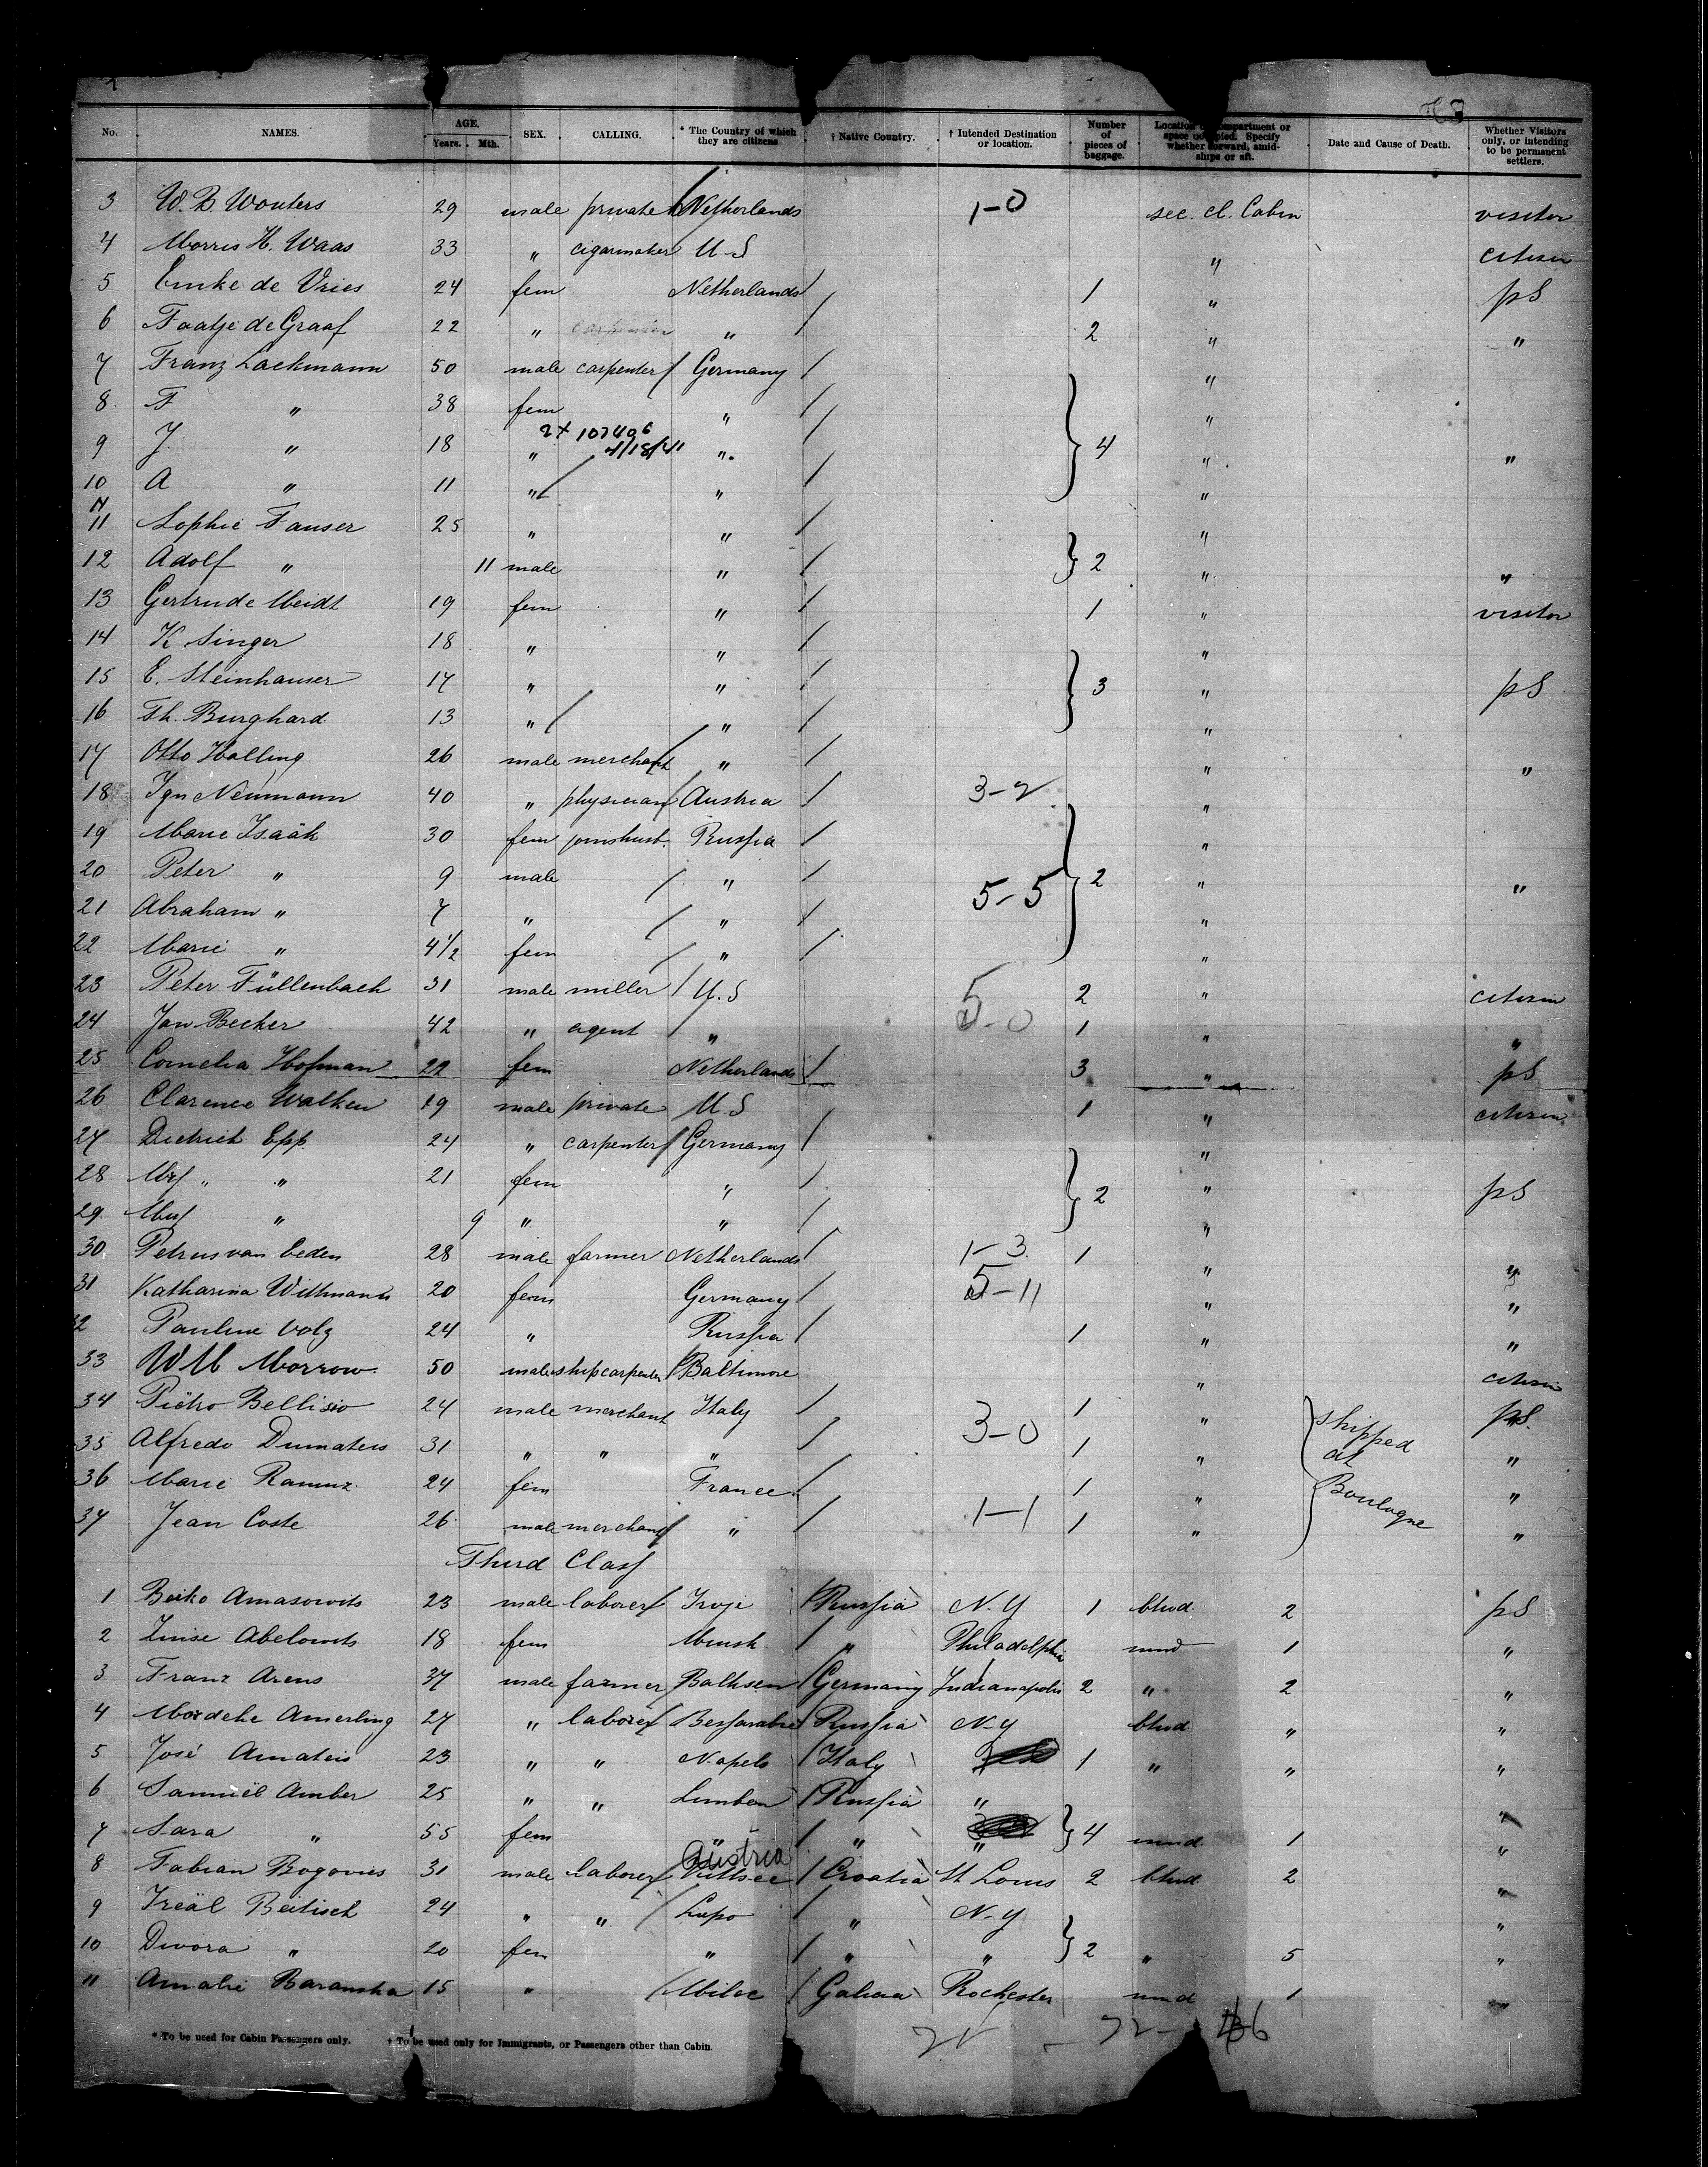 No. NAMES. AGE. Years. Mth. SEX. CALLING. * The Country of which they are citizens † Native Country. † Intended Destination or location. Number of pieces of baggage. Location of compartment or space occupied. Specify whether forward, amidships or aft. Date and Cause of Death. Whether Visitors only, or intending to be permanent settlers.
3 W. B. Wouters 29 male private Netherlands 1-0 sec. cl. Cabin visitor
4 Morris H. Waas 33 " cigarmaker U-S " citizen
5 Emke de Vries 24 fem Netherlands 1 " pS
6 Faatje de Graaf 22 " " 2 " "
7 Franz Lackmann 50 male carpenter Germany "
8 F " 38 fem " "
9 J. " 18 " 2x 107406 4/18/41 " 4 " "
10 A " 11 " " "
11 Sophie Fauser 25 " " "
12 Adolf " 11 male " 2 " "
13 Gertrude Meidt 19 fem " 1 " visitor
14 K Singer 18 " " "
15 E. Steinhauser 17 " " 3 " pS
16 Th. Burghard 13 " " "
17 Otto Halling 26 male merchant " " "
18 Ign Neumann 40 " physician Austria 3-2 "
19 Marie Isaäk 30 fem joins husb. Russia "
20 Peter " 9 male " 5-5 2 " "
21 Abraham " 7 " " "
22 Marie " 4 1/2 fem " "
23 Peter Füllenbach 31 male miller U.S 5-0 2 " citizen
24 Jan Becker 42 " agent " 1 " "
25 Cornelia Hofman 22 fem Netherlands 3 " pS
26 Clarence Walken 19 male private U.S 1 " citizen
27 Dietrich Epp 24 " carpenter Germany "
28 Mrs " " 21 fem " 2 " pS
29 " 9 " " "
30 Petrus van Eeden 28 male farmer Netherlands 1-3 1 " "
31 Katharina Withmann 20 fem Germany 5-11 " "
32 Pauline Volz 24 " Russia 1 " "
33 WM Morrow 50 male shipcarpenter Baltimore " citizen
34 Pietro Bellisio 24 male merchant Italy 3-0 1 " shipped pS
35 Alfredo Dumateis 31 " " " 1 " at "
36 Marie Ramuz 24 fem France 1 " Boulogne "
37 Jean Coste 26 male merchant " 1-1 1 " "
Third Class
1 Beiko Amasowits 23 male laborer Russia N.Y 1 bhvd 2 pS
2 Abelowits 18 fem Minsk " Philadelphia 1 "
3 Franz Arens 37 male farmer Germany Indianapolis 2 " 2 "
4 Mordche Amerling 27 " laborer Bessarabie Russia N-Y bhvd " "
5 José Amateis 23 " " Napels Italy 1 " " "
6 Samuël Amber 25 " " Russia " "
7 Sara " 55 fem " " 4 1 "
8 Fabian Bogovies 31 male laborer Austria Croatia St Louis 2 bhvd 2 "
9 Beitisch 24 " " Lupo " N-Y "
10 Dwora " 20 fem " " " 2 " 5 "
11 Amalie Baranska 15 " Milec Rochester 1 "
* To be used for Cabin Passengers only. † To be used only for Immigrants, or Passengers other than Cabin.